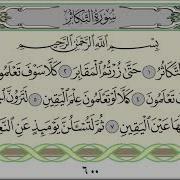 سُورَةُ التَّكَاثُرِ
بِسْمِ اللَّهِ الرَّحْمَٰنِ الرَّحِيمِ
التَّكَاثُرُ ١ حَتَّىٰ زُرْتُمُ الْمَقَابِرَ ٢ كَلَّا سَوْفَ تَعْلَمُونَ
تَعْلَمُونَ ٤ كَلَّا لَوْ تَعْلَمُونَ عِلْمَ الْيَقِينِ ٥ لَتَرَوُنَّ
عَيْنَ الْيَقِينِ ٧ ثُمَّ لَتُسْأَلُنَّ يَوْمَئِذٍ عَنِ
٦٠٠